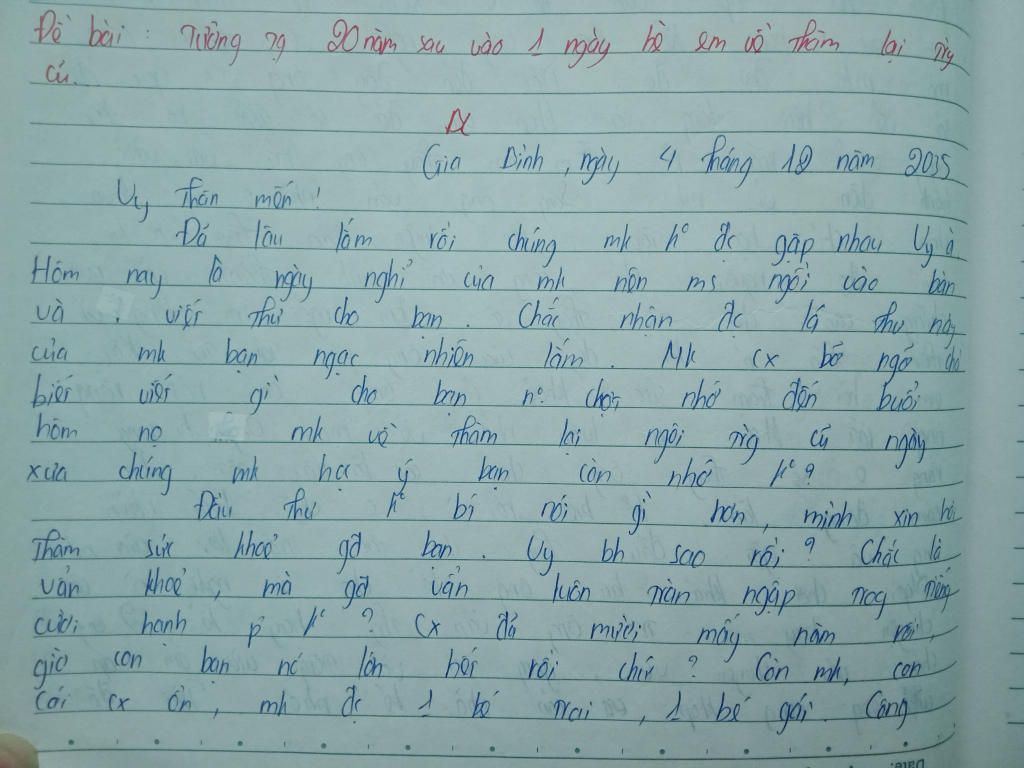 Đề bài : Tưởng tg 20 năm sau vào 1 ngày hè em về thăm lại trg
cũ...
Gia Định, ngày 4 tháng 12 năm 2035
Uy thân mến!
Đã lâu lắm rồi chúng mk ko đc gặp nhau Uy à.
Hôm nay là ngày nghỉ của mk nên ms ngồi vào bàn
và viết thư cho bạn. Chắc nhận đc lá thư này
của mk bạn ngạc nhiên lắm. Mk cx bỡ ngỡ chả
biết viết gì cho bạn n° chợt nhớ đến buổi
hôm nọ mk về thăm lại ngôi trg cũ ngày
xưa chúng mk học ý bạn còn nhớ ko?
Đầu thư ko bí nói gì hơn, mình xin hỏi
thăm sức khoẻ gđ bạn. Uy bh sao rồi? Chắc là
vẫn khoẻ, mà gđ vẫn luôn tràn ngập trog tiếng
cười hạnh p ko? Cx đã mười mấy năm rồi,
giờ con bạn nó lớn hết rồi chứ? Còn mk, con
cái cx ổn, mk đc 1 bé trai, 1 bé gái. Công